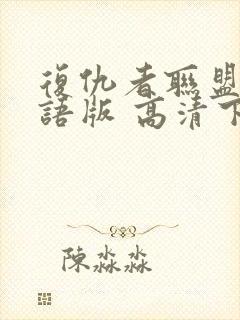 復仇者聯盟
語版 高清下
陳淼淼